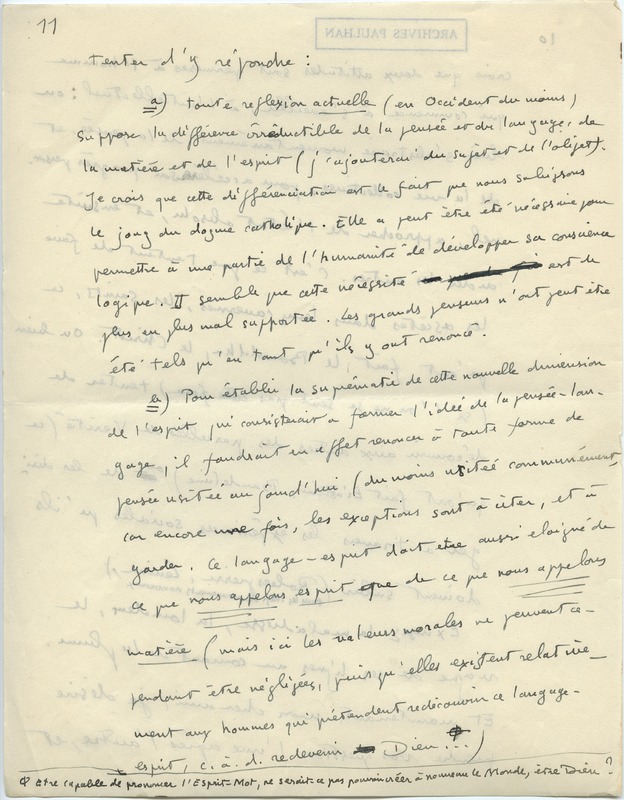 11
ARCHIVES PAULHAN
tenter d'y répondre :
a) toute reflexion actuelle (en Occident du moins)
suppose la différence irréductible de la pensée et du langage, de
la matière et de l'esprit (j'ajouterai du sujet et de l'objet).
Je crois que cette différenciation est le fait que nous subissons
le joug du dogme catholique. Elle a peut être été nécessaire pour
permettre à une partie de l'humanité de développer sa conscience
logique. Il semble que cette nécessité est de
plus en plus mal supportée. Les grands penseurs n'ont peut être
été tels qu'en tant qu'ils y ont renoncé.
b) Pour établir la suprématie de cette nouvelle dimension
de l'esprit qui consisterait à former l'idée de la pensée-lan-
gage, il faudrait en effet renoncer à toute forme de
pensée usitée aujourd'hui (du moins usitée communément,
car encore une fois, les exceptions sont à citer, et à
garder. Ce langage-esprit doit etre aussi eloigné de
ce que nous appelons esprit que de ce que nous appelons
matière (mais ici les valeurs morales ne peuvent ce-
pendant être négligées, puis qu'elles existent relative-
ment aux hommes qui prétendent redécouvrir ce langage-
esprit, c. à. d. redevenir Dieu !)
ɸ Etre capable de prononcer l'Esprit-Mot, ne serait-ce pas pouvoir créer à nouveau le Monde, être Dieu ?